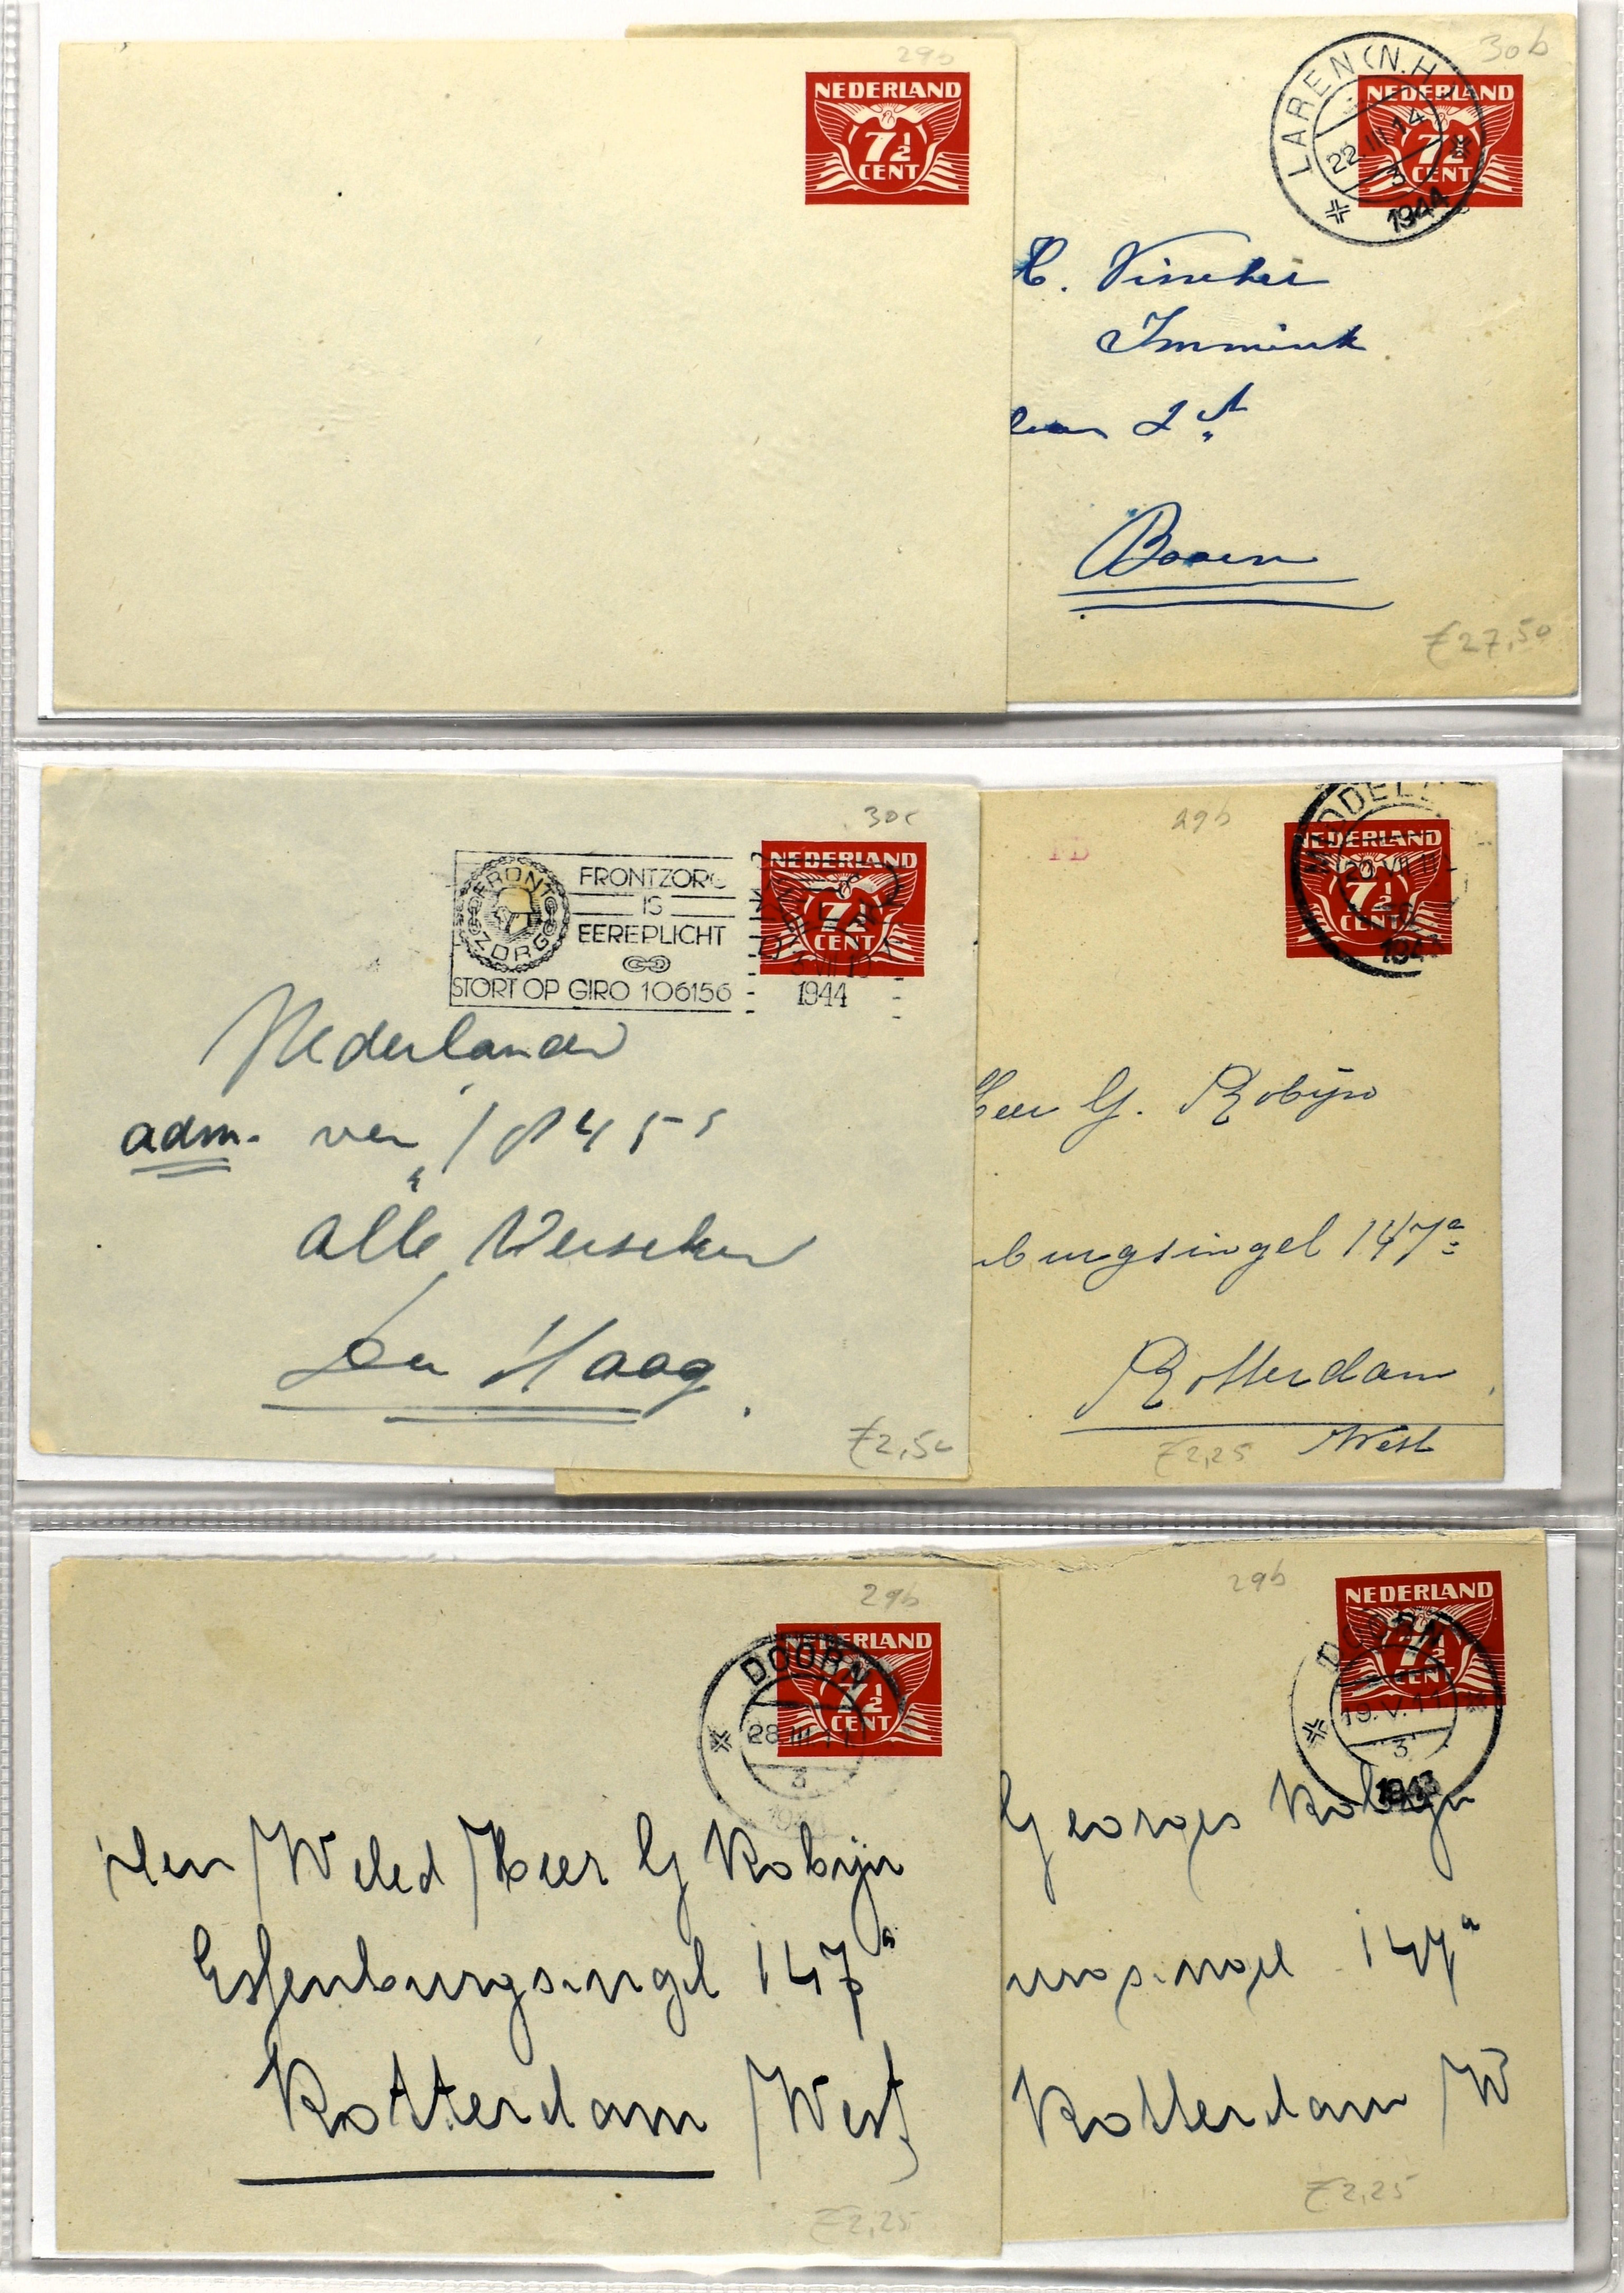 29b
NEDERLAND
7½
CENT
30b
LAREN (N.H.)
22 III 14
3
1944
NEDERLAND
7½
CENT
H. Visscher
Immink
laan 2
Baarn
ƒ27,50
30c
FRONTZORG
FRONTZORG
IS
EEREPLICHT
STORT OP GIRO 106156
1944
NEDERLAND
7½
CENT
Nederlander
adm. ver
alle
Den Haag.
ƒ2,50
29b
NEDERLAND
7½
CENT
Heer G. Robijn
burgsingel 147a
Rotterdam
West
ƒ2,25
29b
NEDERLAND
7½
CENT
DOORN
28 III 11
3
1944
Den Weled Heer G Robijn
Essenburgsingel 147a
Rotterdam West
ƒ2,25
29b
NEDERLAND
7½
CENT
DOORN
19.V.11
3
1943
Georges Robijn
burgsingel 147a
Rotterdam W
ƒ2,25